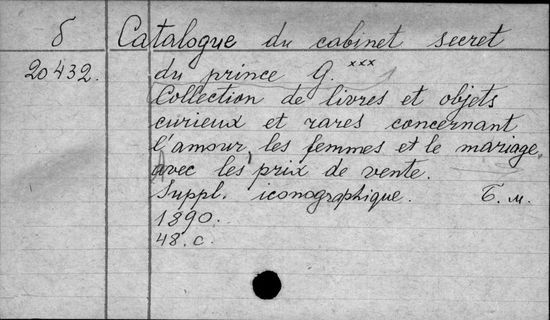 б Catalogue du cabinet secret
20432. du prince G. xxx
Collection de livres et objets
curieux et rares concernant
l'amour, les femmes et le mariage,
avec les prix de vente.
Suppl. iconographique. Б. м.
1890.
48. c.